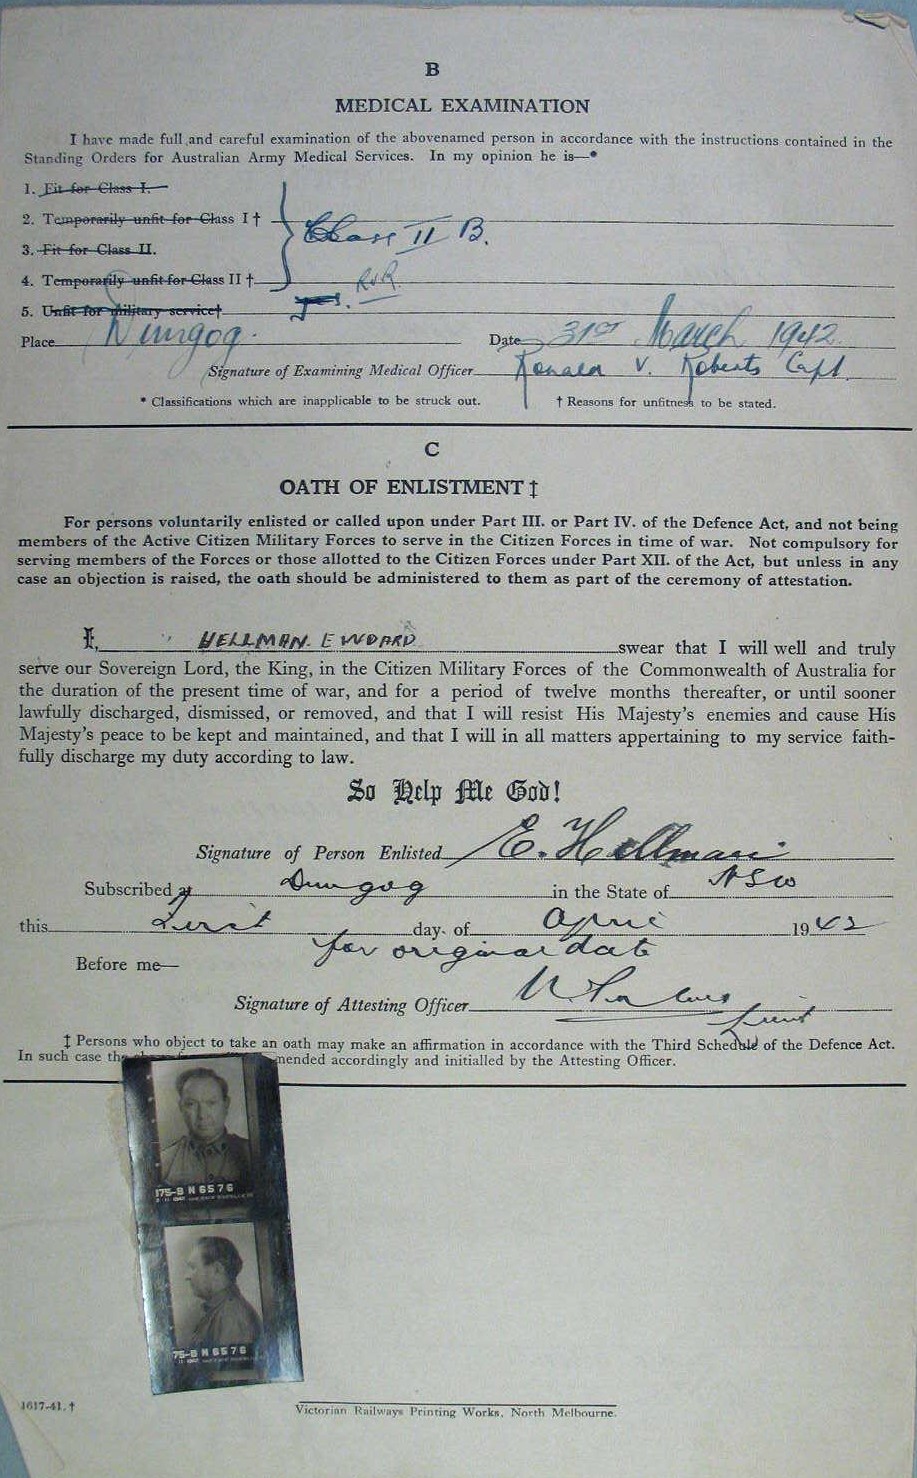 B
MEDICAL EXAMINATION
I have made full and careful examination of the abovenamed person in accordance with the instructions contained in the
Standing Orders for Australian Army Medical Services. In my opinion he is—*
1. Fit for Class I.
2. Temporarily unfit for Class I †
Class II B.
3. Fit for Class II.
4. Temporarily unfit for Class II †
RVR.
5. Unfit for military service†
Place Dungog. Date 31st March 1942
Signature of Examining Medical Officer Ronald V. Roberts Capt.
* Classifications which are inapplicable to be struck out. † Reasons for unfitness to be stated.
C
OATH OF ENLISTMENT ‡
For persons voluntarily enlisted or called upon under Part III. or Part IV. of the Defence Act, and not being
members of the Active Citizen Military Forces to serve in the Citizen Forces in time of war. Not compulsory for
serving members of the Forces or those allotted to the Citizen Forces under Part XII. of the Act, but unless in any
case an objection is raised, the oath should be administered to them as part of the ceremony of attestation.
I, HELLMAN. EWDARD swear that I will well and truly
serve our Sovereign Lord, the King, in the Citizen Military Forces of the Commonwealth of Australia for
the duration of the present time of war, and for a period of twelve months thereafter, or until sooner
lawfully discharged, dismissed, or removed, and that I will resist His Majesty's enemies and cause His
Majesty's peace to be kept and maintained, and that I will in all matters appertaining to my service faith-
fully discharge my duty according to law.
So Help Me God!
Signature of Person Enlisted E. Hellman
Subscribed at Dungog in the State of NSW
this First day of April 1942
for original date
Before me—
Signature of Attesting Officer
Lieut
‡ Persons who object to take an oath may make an affirmation in accordance with the Third Schedule of the Defence Act.
In such case the amended accordingly and initialled by the Attesting Officer.
175-B N 6576
75-B N 6576
1617-41.†
Victorian Railways Printing Works, North Melbourne.